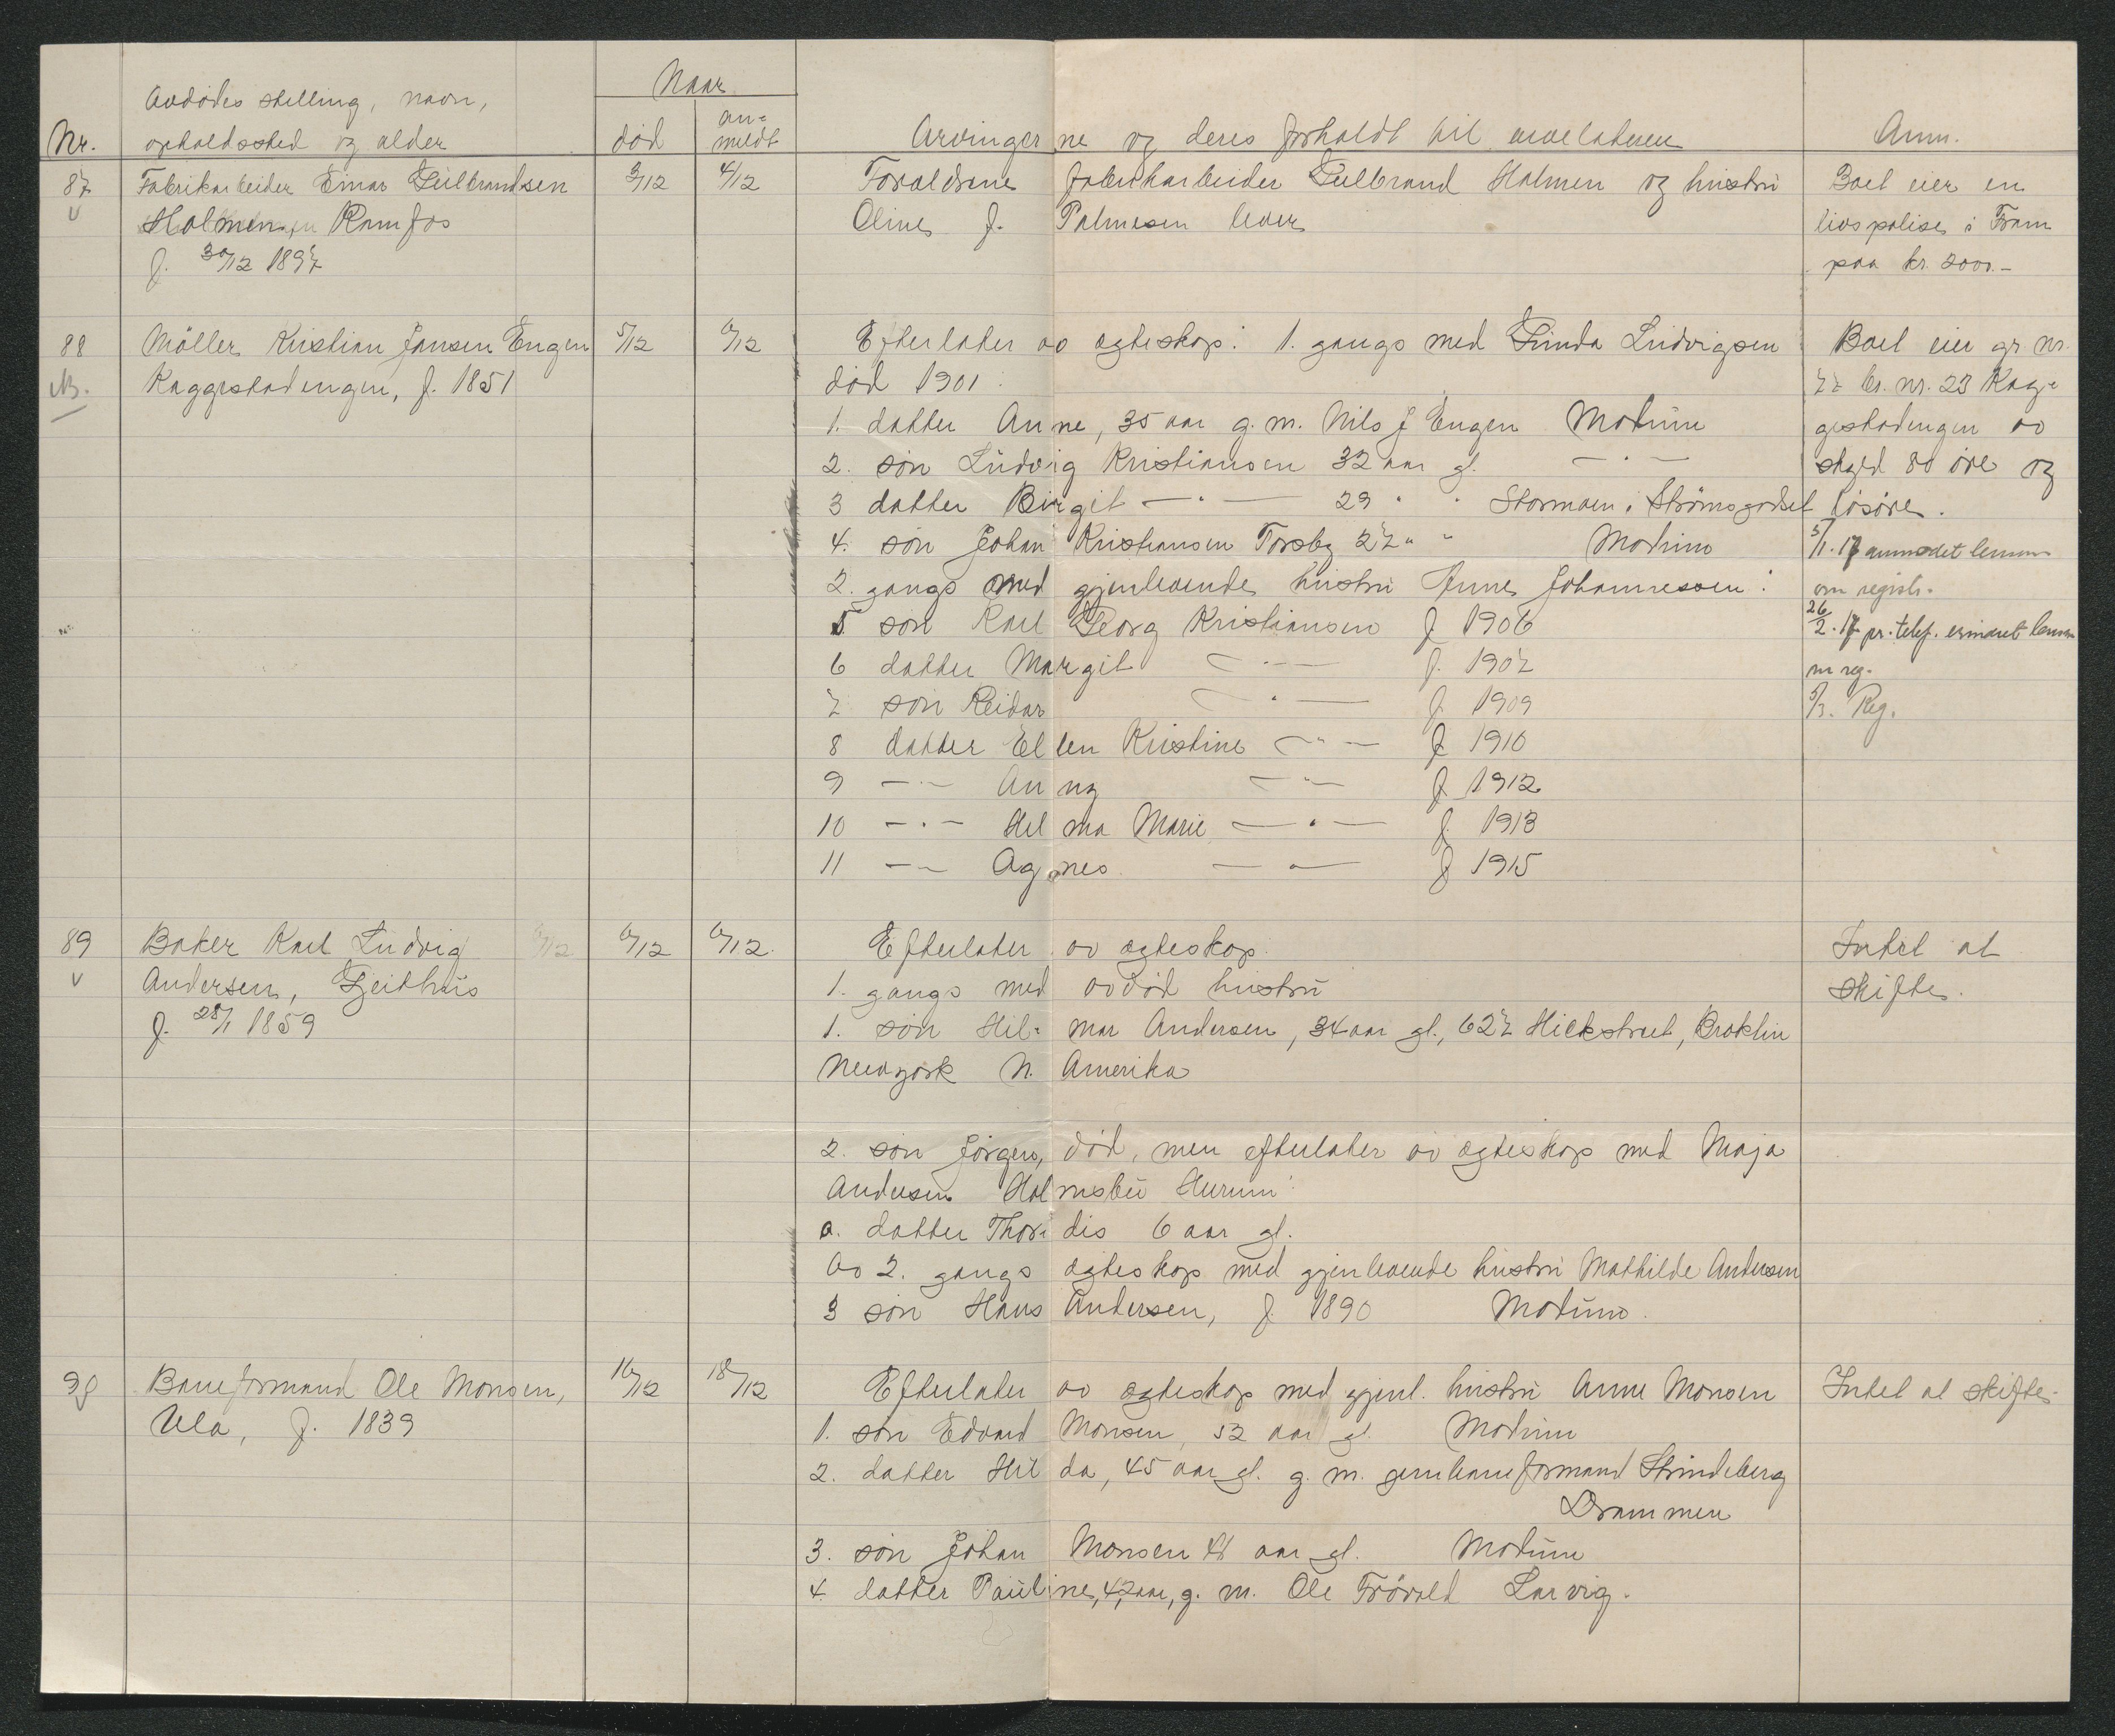 Naar
Avdødes stilling, navn,
Nr. opholdssted og alder død an=
meldt Arvingerne og deres forholdt til arvelateren Anm.
87 Fabrikarbeider Einar Gulbrandsen 3/12 4/12 Forældrene fabrikarbeider Gulbrand Holmen og hustru Boet eier en
v Holmen, Ramfos Oline f. Palmesen lever livspolise i Fram
f. 30/12 1897 paa kr. 2000.-
88 Møller Kristian Jansen Engen 5/12 6/12 Efterlater av egteskap: 1. gangs med Gunda Ludvigsen Boet eier gr. nr.
Kaggestadengen, f. 1851 død 1901: 77 br. nr. 23 Kag-
1. datter Anne, 35 aar g. m. Nils J Engen Modum gestadengen av
2. søn Ludvig Kristiansen 32 aar gl. —"— skyld 80 øre og
3 datter Birgit —"— 29 " " Stormoen i Strømsgodset løsøre.
4. søn Johan Kristiansen Torsby 27 " " Modum 5/1. 17 anmodet lensm.
2. gangs med gjenlevende hustru Anne Johannessen: om registr.
5 søn Karl Georg Kristiansen f 1906 26/2. 17 pr. telef. erindret lensm
6 datter Margit —"— f. 1907 om reg.
7 søn Reidar —"— f. 1909 5/3. Reg.
8 datter Ellen Kristine —"— f 1910
9 —"— Anny —"— f. 1912
10 —"— Helma Marie —"— f. 1913
11 —"— Agnes —"— f 1915
89 Baker Karl Ludvig 6/12 6/12. Efterlater av egteskap. Intet at
v Andersen, Geithus 1. gangs med avdød hustru skifte.
f. 28/1 1859 1. søn Hil= mar Andersen, 34 aar gl., 627 Hickstreet, Broklin
Newyork N. Amerika
2. søn Jørgen, død, men efterlater av egteskap med Maja
Andersen Holmsbu Hurum:
a. datter Thordis 6 aar gl.
Av 2. gangs egteskap med gjenlevende hustru Mathilde Andersen
3 søn Hans Andersen, f. 1890 Modum.
90 Baneformand Ole Monsen, 16/12 18/12 Efterlater av egteskap med gjenl. hustru Anne Monsen Intet at skifte.
Ula, f. 1839 1. søn Edvard Monsen, 52 aar gl. Modum
2. datter Hilda, 45 aar gl. g. m. jernbaneformand Strindeberg
Drammen
3. søn Johan Monsen 44 aar gl. Modum
4. datter Pauline, 42 aar, g. m. Ole Frøvold Larvig.